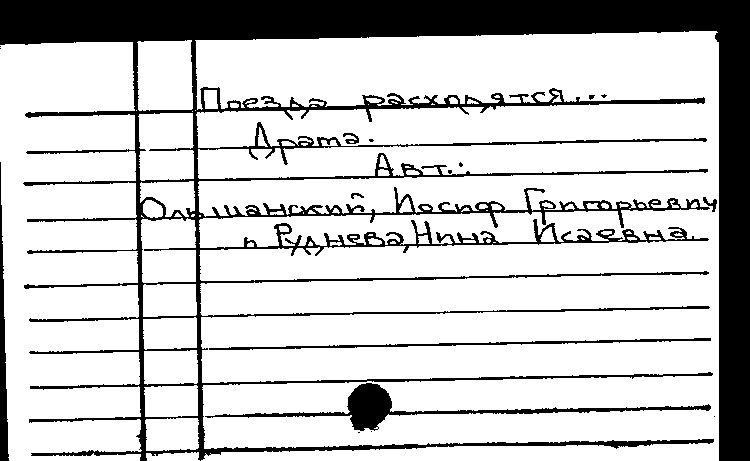 Поезда расходятся...
Драма.
Авт.:
Ольшанский, Иосиф Григорьевич
и Руднева, Нина Исаевна.